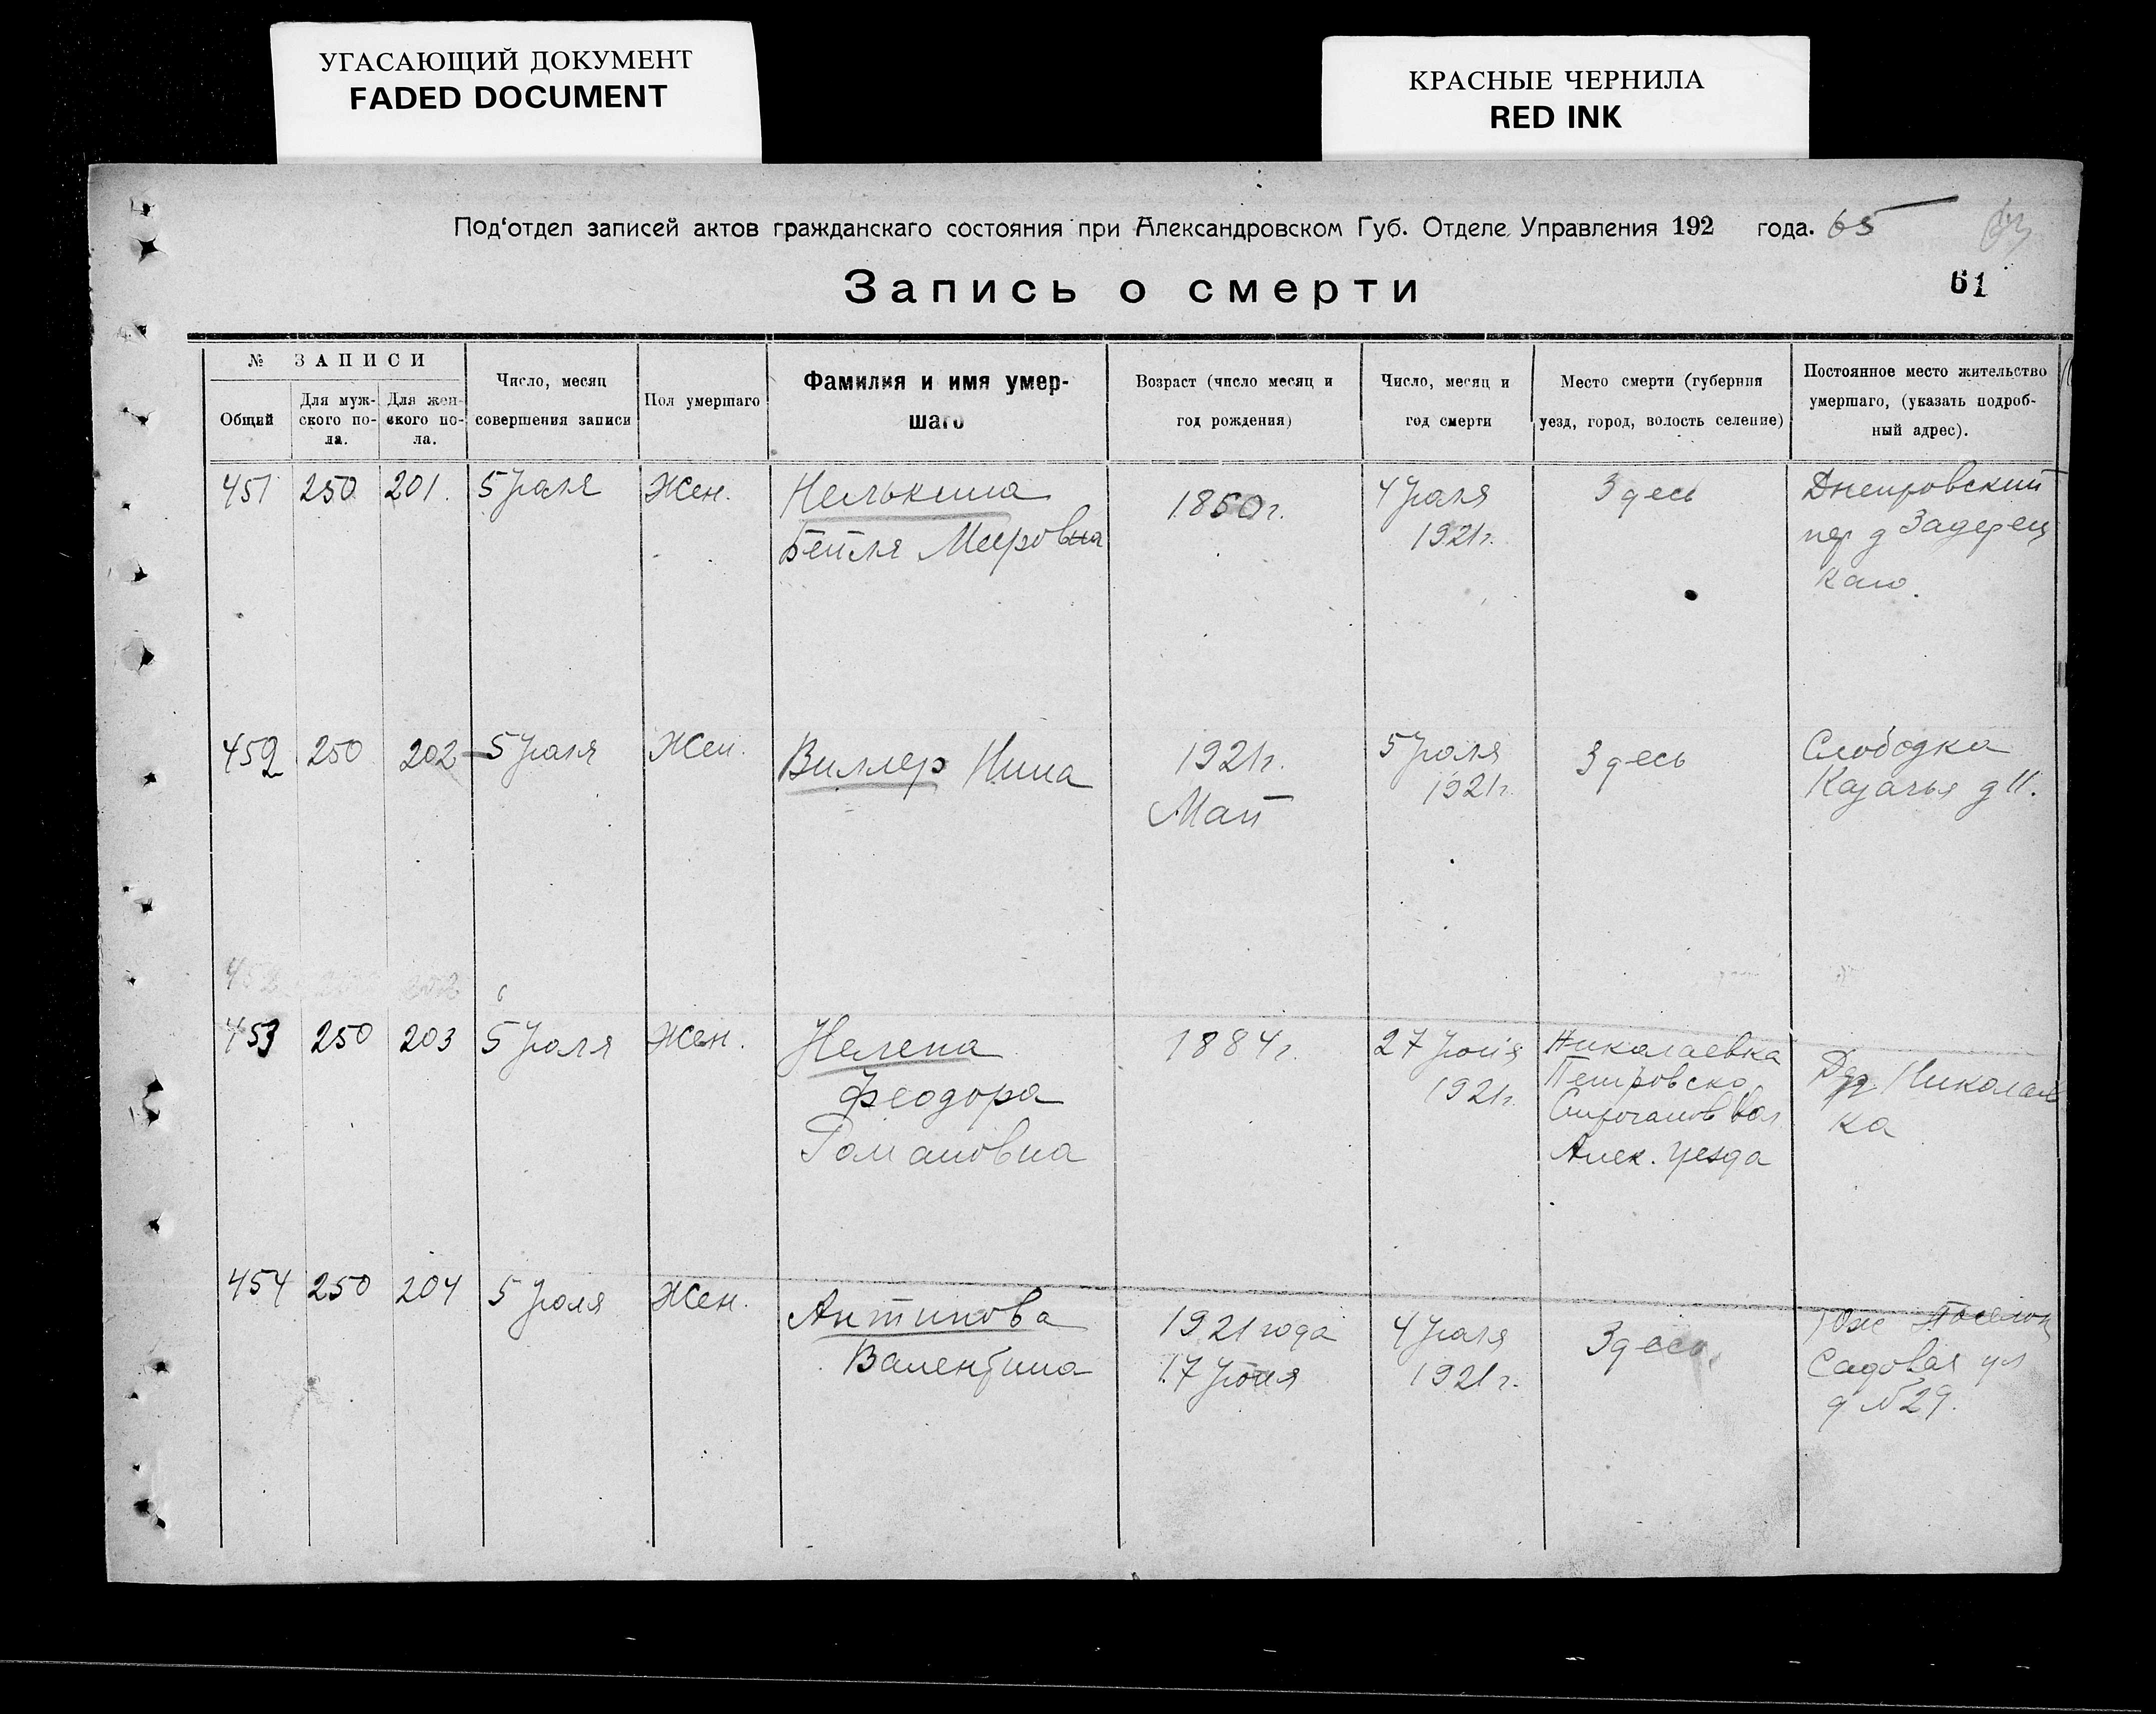 УГАСАЮЩИЙ ДОКУМЕНТ
FADED DOCUMENT
КРАСНЫЕ ЧЕРНИЛА
RED INK
Под'отдел записей актов гражданскаго состояния при Александровском Губ. Отделе Управления 192 года. 65
Запись о смерти
61
№ ЗАПИСИ
Общий
Для муж-
ского по-
ла.
Для жен-
ского по-
ла.
Число, месяц
совершения записи
Пол умершаго
Фамилия и имя умер-
шаго
Возраст (число месяц и
год рождения)
Число, месяц и
год смерти
Место смерти (губерния
уезд, город, волость селение)
Постоянное место жительство
умершаго, (указать подроб-
ный адрес).
451 250 201. 5 Июля Жен.
Нелькина
Бейля Меировна
1850 г.
4 Июля
1921 г.
Здесь
Днепровский
пер д Задерец
каго.
452 250 202 5 Июля Жен.
Виллер Нина
1921 г.
Май
5 Июля
1921 г.
Здесь
Слободка
Казачья д 11.
452 202
453 250 203 5 Июля Жен.
Нелепа
Феодора
Романовна
1884 г.
27 Июня
1921 г.
Николаевка
Петровско
Вол
Алек. уезда
Дер. Николаев
ка
454 250 204 5 Июля Жен.
Антипова
Валентина
1921 года
17 Июня
4 Июля
1921 г.
Здесь
Юж Поселок
Садовая ул
д № 29.